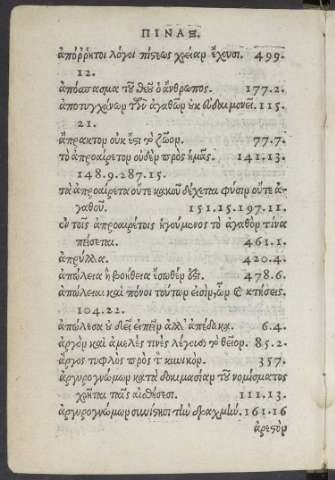 ΠΙΝΑΞ.
ἀπόῤῥητοι λόγοι πίστεως χρείαν ἔχουσι. 499.
12.
ἀπόσπασμα τοῦ θεοῦ ὁ ἄνθρωπος. 177.2.
ἀποτυγχάνων τῶν ἀγαθῶν οὐκ εὐδαιμονεῖ. 115.
21.
ἄπρακτον οὐκ ἔστι τὸ ζῶον. 77.7.
τὸ ἀπροαίρετον οὐδὲν πρὸς ἡμᾶς. 141.13.
148.9.287.15.
τὰ ἀπροαίρετα οὔτε κακοῦ δέχεται φύσιν οὔτε ἀ-
γαθοῦ. 151.15.197.11.
ἐν τοῖς ἀπροαιρέτοις ἡγούμενος τὸ ἀγαθὸν τίνα
πείσεται. 461.1.
ἀπρύλλα. 420.4.
ἀπώλεια ἢ βοήθεια ἔσωθέν ἐστι. 478.6.
ἀπώλειαι καὶ πόνοι τούτων εἰσὶν, ὧν καὶ κτήσεις.
104.22.
ἀπώλεσα οὐ δεῖ εἰπεῖν ἀλλ' ἀπέδωκα. 6.4.
ἀργὸν καὶ ἀμελές τινες λέγουσι τὸ θεῖον. 85.2.
ἄργος τυφλὸς πρὸς τὸν κυνικόν. 357.
ἀργυρογνώμων κατὰ δοκιμασίαν τοῦ νομίσματος
χρῆται ταῖς αἰσθήσεσι. 111.13.
ἀργυρογνώμων συνίησι τῶν δραχμῶν. 161.16
ἀρεστὸν